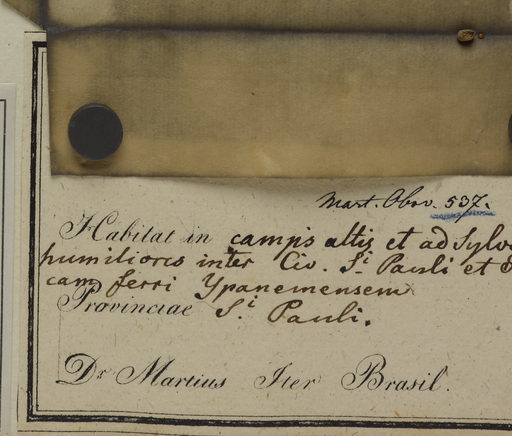 Mart. Obsv. 537.
Habitat in campis altis et ad Sylv
humiliores inter Civ. S.i Pauli et
cam ferri Ypanemensem
Provinciae S.i Pauli.
Dr. Martius Iter Brasil.